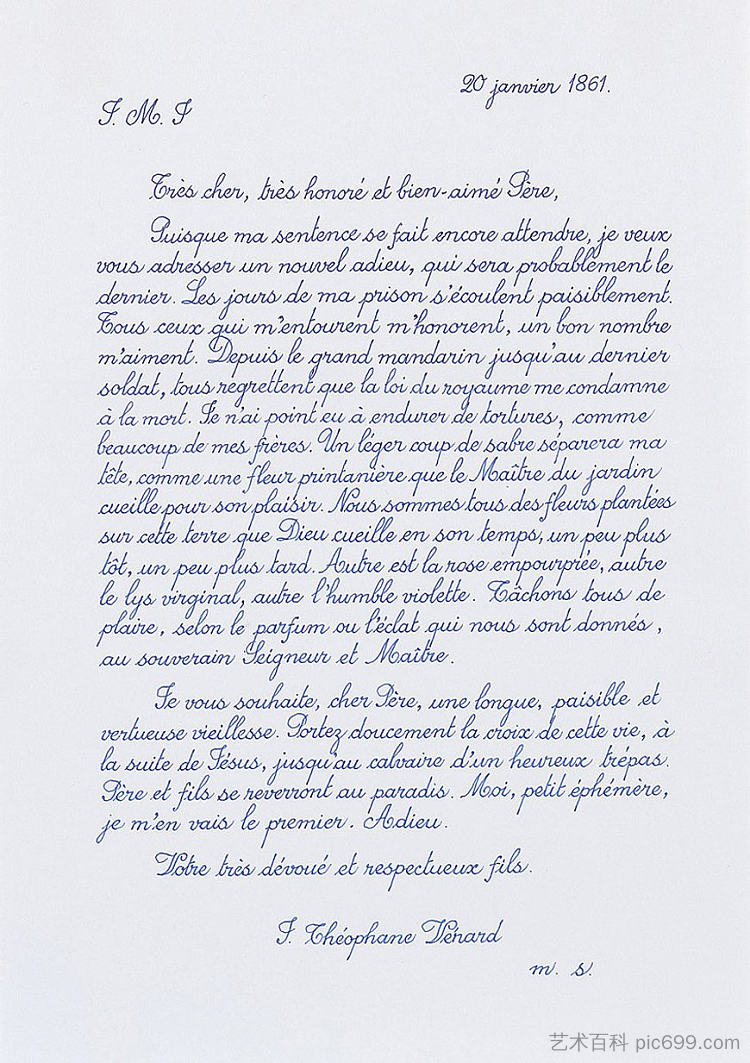 20 janvier 1861.
J. M. J
Très cher, très honoré et bien-aimé Père,
Puisque ma sentence se fait encore attendre, je veux
vous adresser un nouvel adieu, qui sera probablement le
dernier. Les jours de ma prison s'écoulent paisiblement.
Tous ceux qui m'entourent m'honorent, un bon nombre
m'aiment. Depuis le grand mandarin jusqu'au dernier
soldat, tous regrettent que la loi du royaume me condamne
à la mort. Je n'ai point eu à endurer de tortures, comme
beaucoup de mes frères. Un léger coup de sabre séparera ma
tête, comme une fleur printanière que le Maître du jardin
cueille pour son plaisir. Nous sommes tous des fleurs plantées
sur cette terre que Dieu cueille en son temps, un peu plus
tôt, un peu plus tard. Autre est la rose empourprée, autre
le lys virginal, autre l'humble violette. Tâchons tous de
plaire, selon le parfum ou l'éclat qui nous sont donnés,
au souverain Seigneur et Maître.
Je vous souhaite, cher Père, une longue, paisible et
vertueuse vieillesse. Portez doucement la croix de cette vie, à
la suite de Jésus, jusqu'au calvaire d'un heureux trépas.
Père et fils se reverront au paradis. Moi, petit éphémère,
je m'en vais le premier. Adieu.
Votre très dévoué et respectueux fils.
J. Théophane Vénard
m. s.
艺术百科 pic699.com